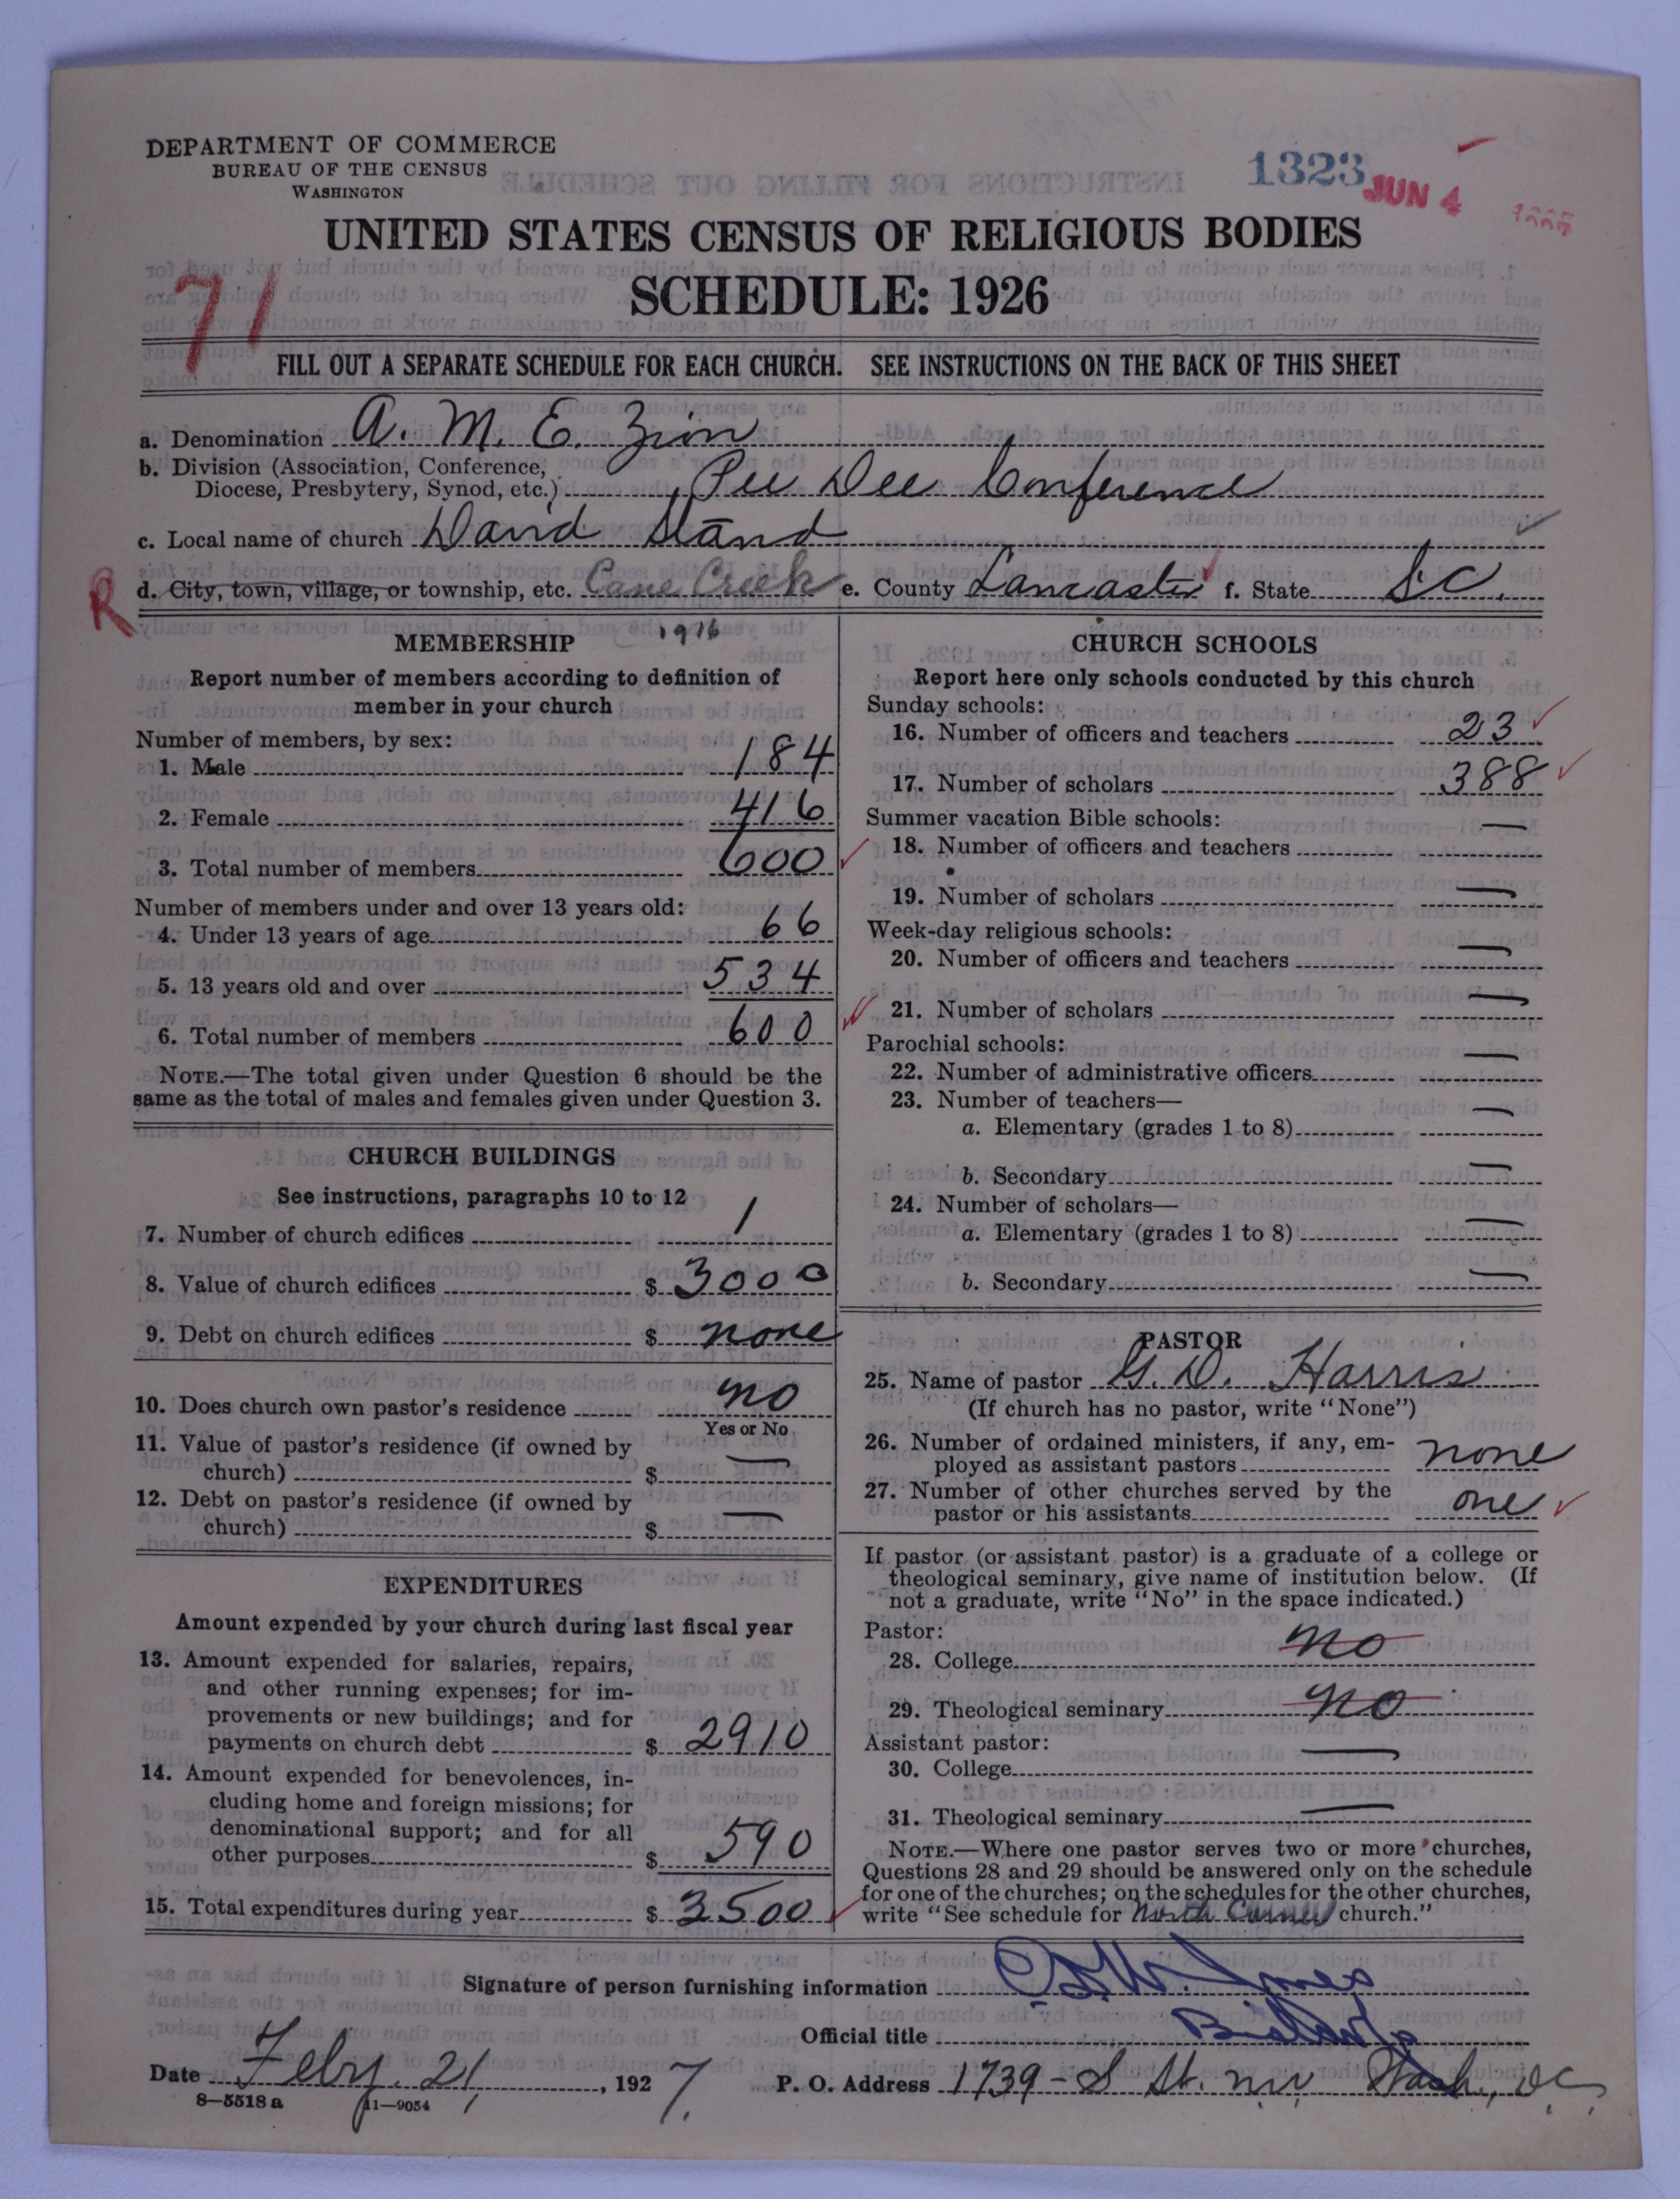 DEPARTMENT OF COMMERCE
BUREAU OF THE CENSUS
WASHINGTON
1323
JUN 4
UNITED STATES CENSUS OF RELIGIOUS BODIES
SCHEDULE: 1926
71
FILL OUT A SEPARATE SCHEDULE FOR EACH CHURCH. SEE INSTRUCTIONS ON THE BACK OF THIS SHEET
a. Denomination A. M. E. Zion
b. Division (Association, Conference,
Diocese, Presbytery, Synod, etc.) Pee Dee Conference
c. Local name of church David Stand
R d. City, town, village, or township, etc. Cane Creek e. County Lancaster f. State S.C.
MEMBERSHIP 1926
Report number of members according to definition of
member in your church
Number of members, by sex:
1. Male 184
2. Female 416
3. Total number of members 600
Number of members under and over 13 years old:
4. Under 13 years of age 66
5. 13 years old and over 534
6. Total number of members 600
NOTE.—The total given under Question 6 should be the
same as the total of males and females given under Question 3.
CHURCH BUILDINGS
See instructions, paragraphs 10 to 12
7. Number of church edifices 1
8. Value of church edifices $ 3000
9. Debt on church edifices $ none
10. Does church own pastor's residence no
Yes or No
11. Value of pastor's residence (if owned by
church) $ —
12. Debt on pastor's residence (if owned by
church) $ —
EXPENDITURES
Amount expended by your church during last fiscal year
13. Amount expended for salaries, repairs,
and other running expenses; for im-
provements or new buildings; and for
payments on church debt $ 2910
14. Amount expended for benevolences, in-
cluding home and foreign missions; for
denominational support; and for all
other purposes $ 590
15. Total expenditures during year $ 3500
CHURCH SCHOOLS
Report here only schools conducted by this church
Sunday schools:
16. Number of officers and teachers 23
17. Number of scholars 388
Summer vacation Bible schools:
18. Number of officers and teachers —
19. Number of scholars —
Week-day religious schools:
20. Number of officers and teachers —
21. Number of scholars —
Parochial schools:
22. Number of administrative officers —
23. Number of teachers—
a. Elementary (grades 1 to 8) —
b. Secondary —
24. Number of scholars—
a. Elementary (grades 1 to 8) —
b. Secondary —
PASTOR
25. Name of pastor G. D. Harris
(If church has no pastor, write "None")
26. Number of ordained ministers, if any, em-
ployed as assistant pastors none
27. Number of other churches served by the
pastor or his assistants one
If pastor (or assistant pastor) is a graduate of a college or
theological seminary, give name of institution below. (If
not a graduate, write "No" in the space indicated.)
Pastor:
28. College no
29. Theological seminary no
Assistant pastor:
30. College —
31. Theological seminary —
NOTE.—Where one pastor serves two or more churches,
Questions 28 and 29 should be answered only on the schedule
for one of the churches; on the schedules for the other churches,
write "See schedule for North Corner church."
Signature of person furnishing information Jones
Official title
Date Feby. 21, 1927. P. O. Address 1739 - S St. nw Wash., DC,
8—5518a 11—9054